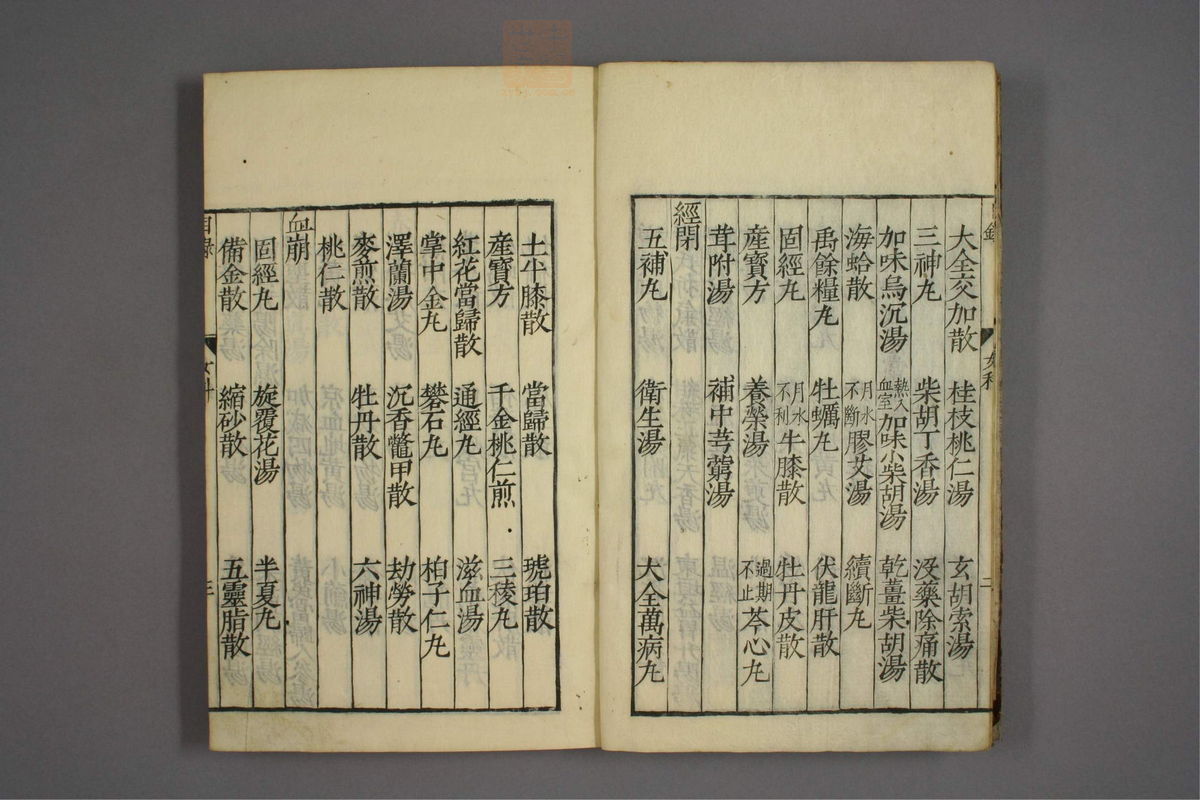 大全交加散 桂枝桃仁湯 玄胡索湯
三神丸 柴胡丁香湯 沒藥除痛散
加味烏沉湯 熱入血室加味小柴胡湯 乾薑柴胡湯
海蛤散 月水不斷膠艾湯 續斷丸
禹餘糧丸 牡蠣丸 伏龍肝散
固經丸 月水不利牛膝散 牡丹皮散
産寶方 養榮湯 過期不止芩心丸
茸附湯 補中芎藭湯
經閉
五補丸 衛生湯 大全萬病丸
土牛膝散 當歸散 琥珀散
産寶方 千金桃仁煎 三稜丸
紅花當歸散 通經丸 滋血湯
掌中金丸 礬石丸 柏子仁丸
澤蘭湯 沉香鼈甲散 劫勞散
麥煎散 牡丹散 六神湯
桃仁散
血崩
固經丸 旋覆花湯 半夏丸
備金散 縮砂散 五靈脂散
目錄 女科 三